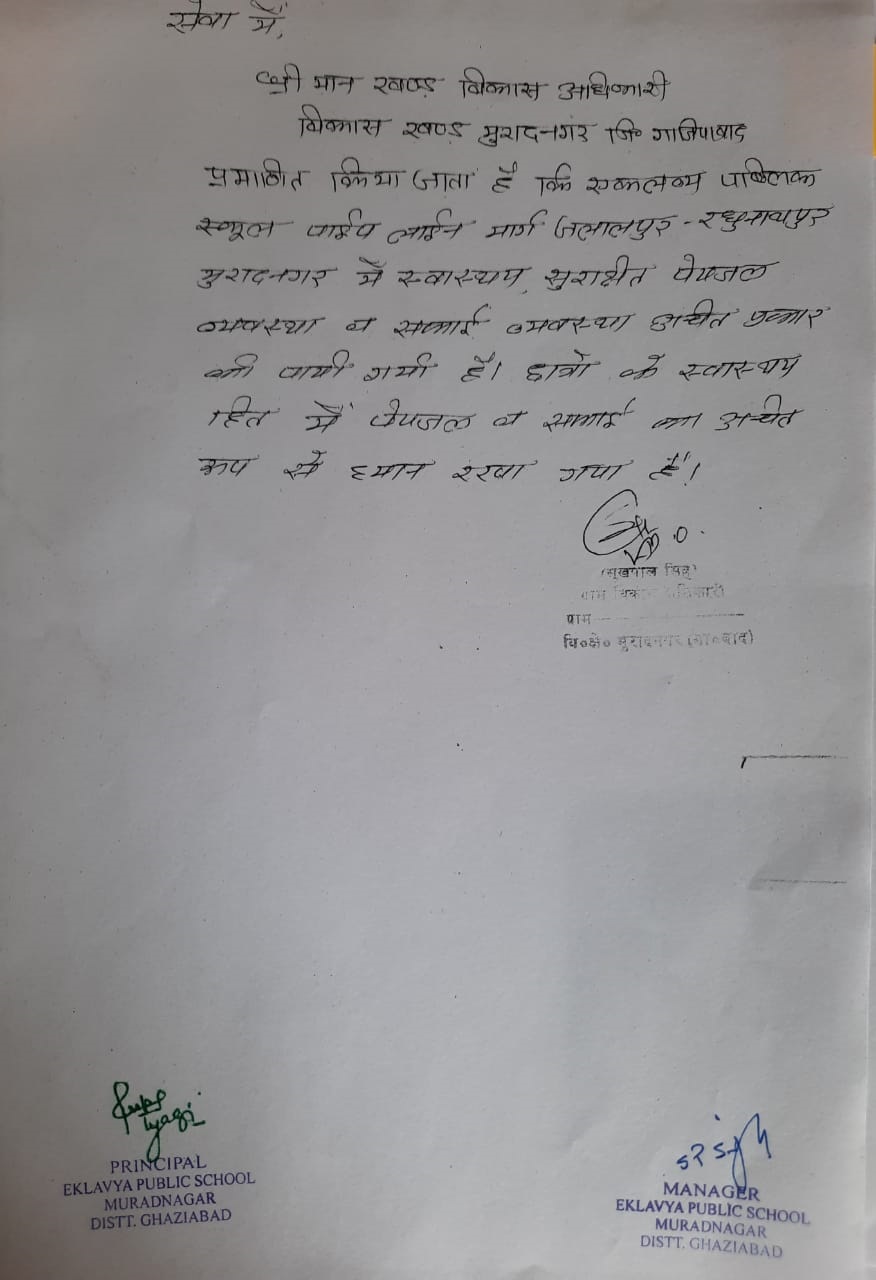 सेवा में,
श्री मान खण्ड विकास अधिकारी
विकास खण्ड मुरादनगर जि० गाजियाबाद
प्रमाणित किया जाता है कि एकलव्य पब्लिक
स्कूल पाईप लाईन मार्ग जलालपुर - रघुनाथपुर
मुरादनगर में स्वास्थय, सुरक्षित पेयजल
व्यवस्था व सफाई व्यवस्था उचीत प्रकार
की पायी गयी है। छात्रो के स्वास्थय
हित में पेयजल व सफाई का उचीत
रूप से ध्यान रखा गया है।
(सुखपाल सिंह)
ग्राम विकास अधिकारी
ग्राम
वि०क्षे० मुरादनगर (गा०बाद)
Tyagi
PRINCIPAL
EKLAVYA PUBLIC SCHOOL
MURADNAGAR
DISTT. GHAZIABAD
S P Singh
MANAGER
EKLAVYA PUBLIC SCHOOL
MURADNAGAR
DISTT. GHAZIABAD